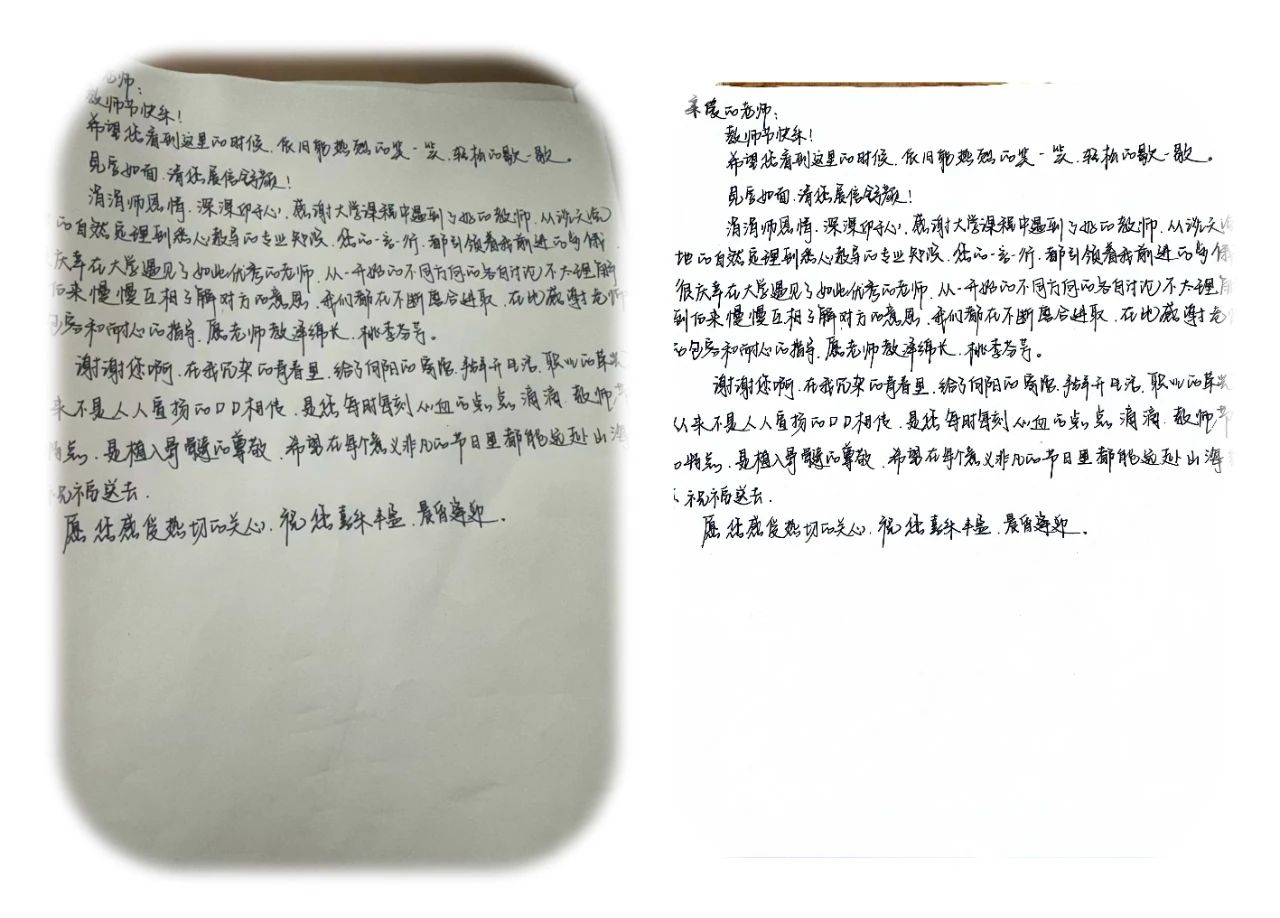 老师：
教师节快乐！
希望您看到这里的时候，依旧能热烈的笑一笑，轻松的歇一歇。
见字如面，请您展信舒颜！
涓涓师恩情，深深印于心，感谢大学课程中遇到了好的教师，从谈天论
的自然定理到悉心教导的专业知识，您的一言一行，都引领着我前进的
庆幸在大学遇见了如此优秀的老师，从一开始的不同方向的各自讨论不太理解
后来慢慢互相了解对方的意思，我们都在不断磨合进取，在此感谢老师
包容和耐心的指导，愿老师教泽绵长，桃李芬芳。
谢谢您啊，在我冗杂的青春里，给了向阳的寄语，
来不是人人宣扬的口口相传，是您每时每刻心血的点点滴滴，教师节
特点，是植入骨髓的尊敬，希望在每个意义非凡的节日里都能远赴山海
祝福送去。
愿您感受热切的关心，祝您喜乐丰盈，
亲爱的老师：
教师节快乐！
希望您看到这里的时候，依旧能热烈的笑一笑，轻松的歇一歇。
见字如面，请您展信舒颜！
涓涓师恩情，深深印于心，感谢大学课程中遇到了好的教师，从谈天
地的自然定理到悉心教导的专业知识，您的一言一行，都引领着我前进的
很庆幸在大学遇见了如此优秀的老师，从一开始的不同方向的各自讨论不太理解
到后来慢慢互相了解对方的意思，我们都在不断磨合进取，在此感谢老
的包容和耐心的指导，愿老师教泽绵长，桃李芬芳。
谢谢您啊，在我冗杂的青春里，给了向阳的寄语，
从来不是人人宣扬的口口相传，是您每时每刻心血的点点滴滴，教师节
特点，是植入骨髓的尊敬，希望在每个意义非凡的节日里都能远赴山海
祝福送去。
愿您感受热切的关心，祝您喜乐丰盈，